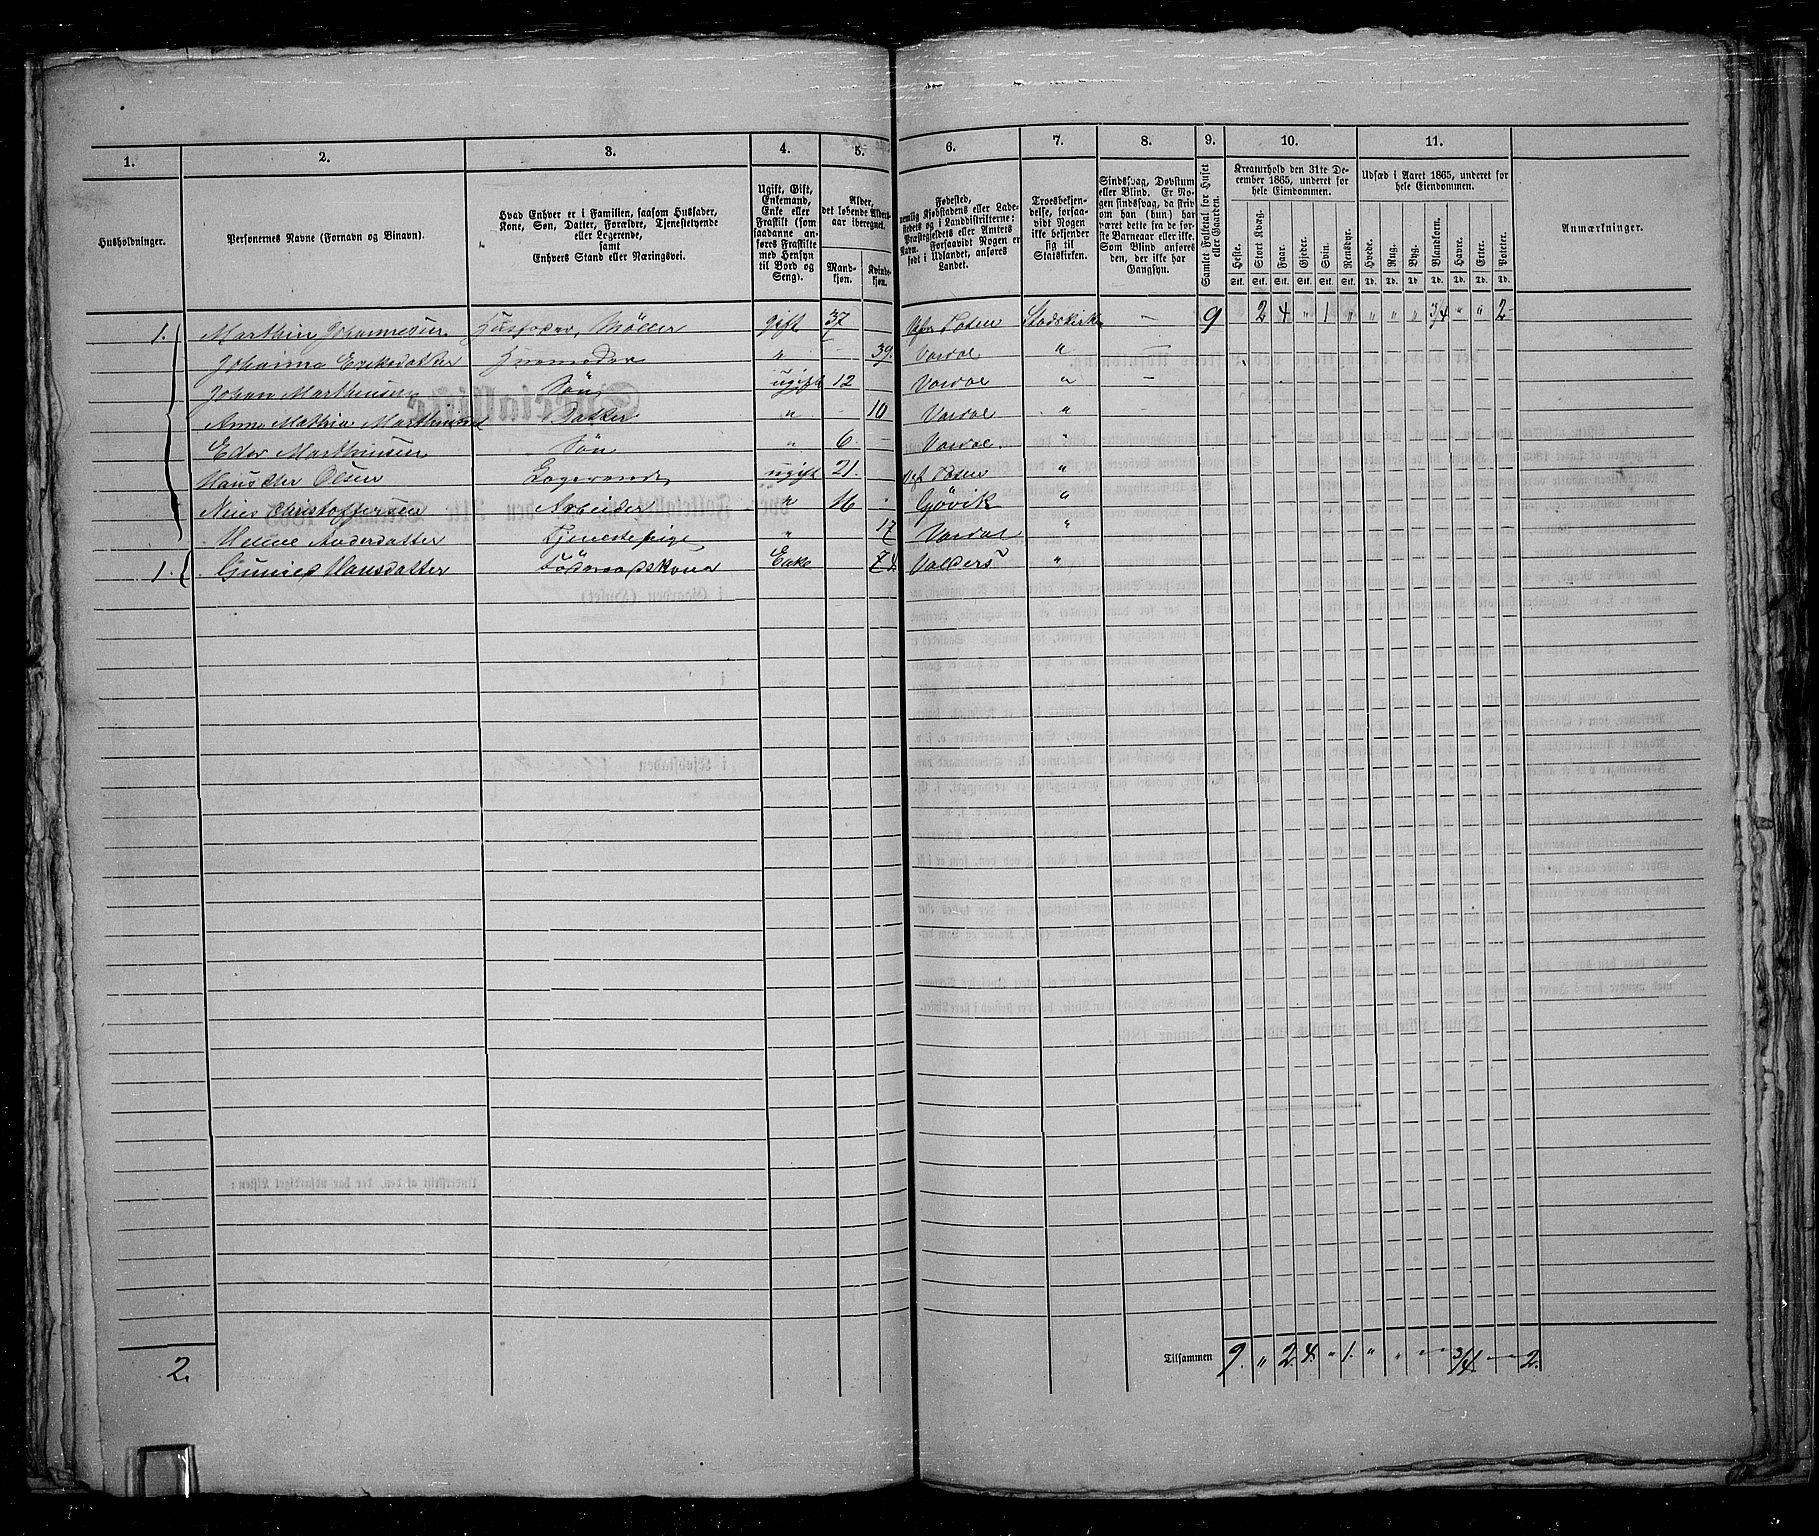 1. 2. 3. 4. 5. 6. 7. 8. 9. 10. 11.
Husholdninger.
Personernes Navne (Fornavn og Binavn).
Hvad Enhver er i Familien, saasom Husfader,
Kone, Søn, Datter, Forældre, Tjenestetyende
eller Logerende,
samt
Enhvers Stand eller Næringsvei.
Ugift, Gift,
Enkemand,
Enke eller
Fraskilt (som
saadanne an-
føres Fraskilte
med Hensyn
til Bord og
Seng).
Alder,
det løbende Alders-
aar iberegnet.
Mand-
kjøn.
Kvinde-
kjøn.
Fødested,
nemlig Kjøbstadens eller Lade-
stedets og i Landdistrikterne:
Præstegjeldets eller Amtets
Navn. Forsaavidt Nogen er
født i Udlandet, anføres
Landet.
Troesbekjen-
delse, forsaa-
vidt Nogen
ikke bekjender
sig til
Statskirken.
Sindssvag, Døvstum
eller Blind. Er No-
gen sindssvag, da skriv
om han (hun) har
været dette fra de for-
ste Barneaar eller ikke.
Som Blind anføres
den, der ikke har
Gangsyn.
Samlet Folketal for Huset
eller Gaarden.
Kreaturhold den 31te De-
cember 1865, underet for
hele Eiendommen.
Heste. Stort Kvæg. Faar. Gjeder. Svin. Rensdyr.
Stk. Stk. Stk. Stk. Stk. Stk.
Udsæd i Aaret 1865, underet for
hele Eiendommen.
Hvede. Rug. Byg. Blandkorn. Havre. Erter. Poteter.
Td. Td. Td. Td. Td. Td. Td.
Anmærkninger.
1. Marthin Johannesen Husfader, Møller gift 37 Toten Statskirke — 9 2 4 " 1 " " " " 3/4 " " 2
Johanna Eriksdatter Huusmoder " 39 Vardal " —
Johan Marthinsen Søn ugift 12 Vardal " —
Anne Mathia Datter " 10 Vardal "
Marthinsen Søn " 6 Vardal "
Olsen Logerende ugift 21 Toten "
Christoffersen Arbeider " 16 Gjövik "
Andersdatter Tjenestepige " 17 Vardal "
1. Hansdatter Föderaadskone Enke 74 Valders "
2. Tilsammen 9. " 2 4. " 1. " " 3/4. 2.